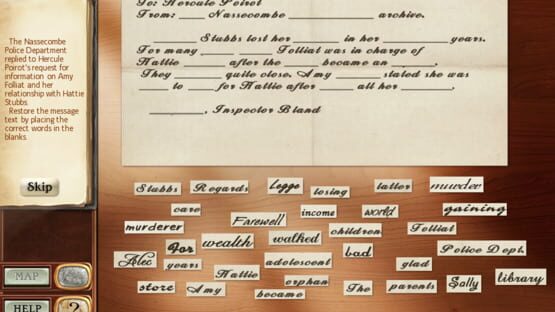 The Nassecombe
Police Department
replied to Hercule
Poirot's request for
information on Amy
Folliat and her
relationship with Hattie
Stubbs.
Restore the message
text by placing the
correct words in the
blanks.
Skip
MAP
HELP
?
To: Hercule Poirot
From: ____ Nassecombe ____ archive.
Stubbs lost her ____ in her ____ years.
For many ____ ____ Folliat was in charge of
Hattie ____ after the ____ became an ____.
They ____ quite close. Amy ____ stated she was
to ____ for Hattie after ____ all her ____.
____, Inspector Bland
Stubbs Regards Legge losing latter murder
care Farewell income world gaining
murderer children Folliat
For wealth walked bad Police Dept.
Alec years adolescent glad
Hattie orphan
store Amy became The parents Sally library